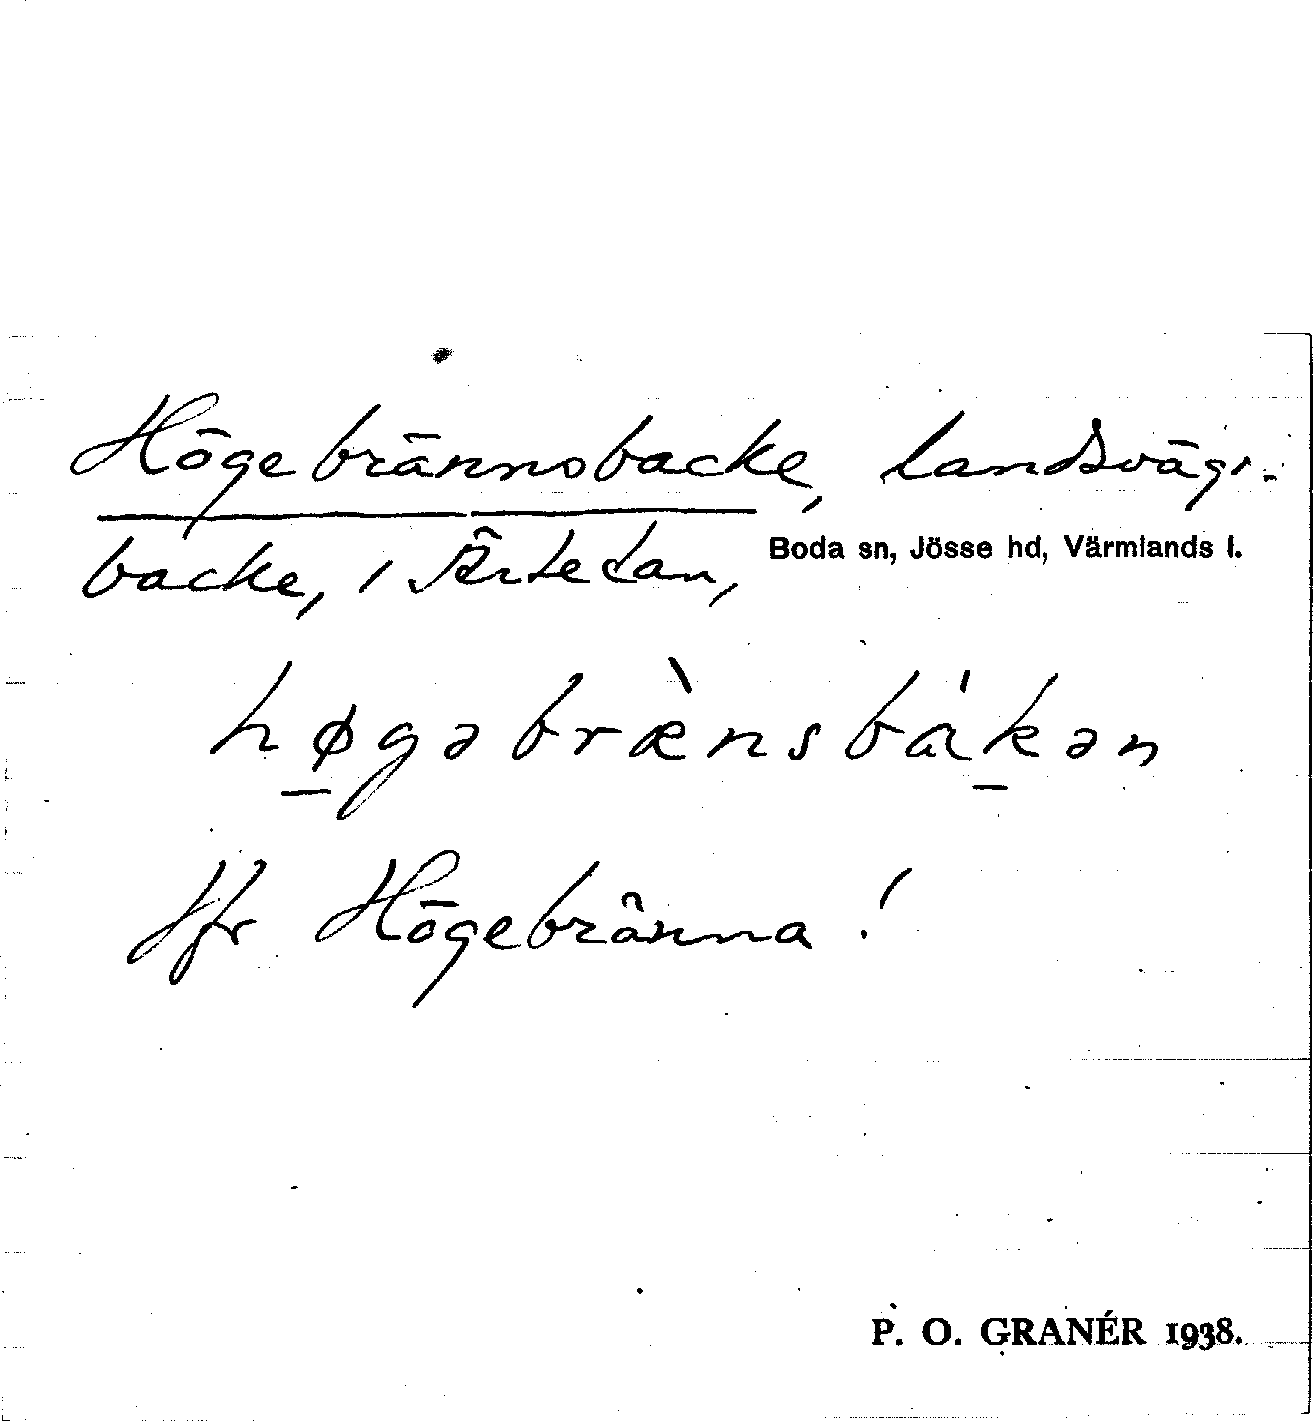 Högebrännsbacke, landsvägs-
backe, i Ärtetan,
Boda sn, Jösse hd, Värmlands l.
høgəbrænsbákən
Jfr Högebränna!
P. O. GRANÉR 1938.